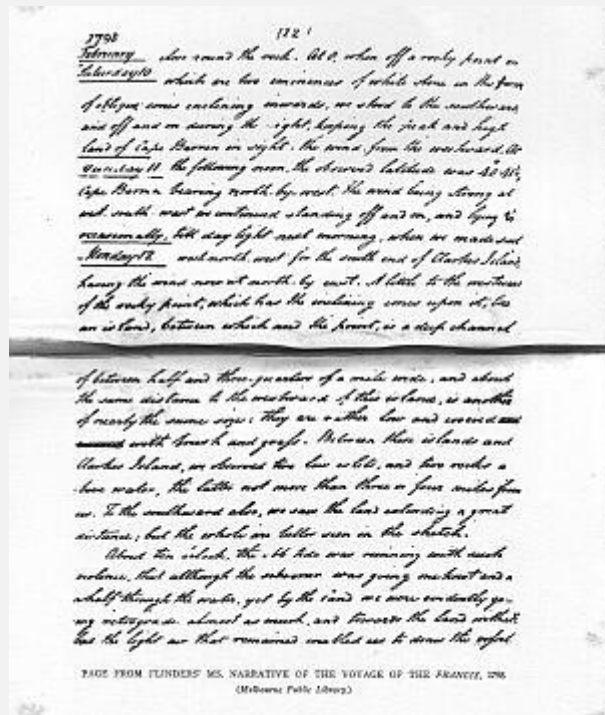 1798
(22)
February close round the rock. At 8, when off a rocky point on
Saturday 10 which are two eminences of white stone in the form
of oblique cones inclining inwards, we stood to the southward,
and off and on during the night, keeping the peak and high
land of Cape Barren in sight: the wind from the westward. At
Sunday 11 the following noon, the observed latitude was
Cape Barren bearing north-by-west. The wind being strong at
west-south-west we continued standing off and on, and lying to
occasionally, till day light next morning, when we made sail
Monday 12 west north west for the south end of Clarkes Island,
having the wind now at north-by-east. A little to the westward
of the rocky point, which has the inclining cones upon it, lies
an island, between which and the point, is a deep channel
of between half and three-quarters of a mile wide, and about
the same distance to the westward of this island, is another
of nearly the same size: they are rather low and covered
with brush and grass. Between these islands and
Clarkes Island, we observed two low islets, and two rocks a
bove water, the latter not more than three or four miles from
us. To the southward also, we saw the land extending a great
distance; but the whole are better seen in the sketch.
About ten o'clock, the ebb tide was running with such
violence, that although the schooner was going one knot and a
half through the water, yet by the land we were evidently go-
ing retrograde almost as much, and towards the land withal;
but the light air that remained enabled us to draw the
PAGE FROM FLINDERS' MS. NARRATIVE OF THE VOYAGE OF THE FRANCIS, 1798
(Melbourne Public Library.)